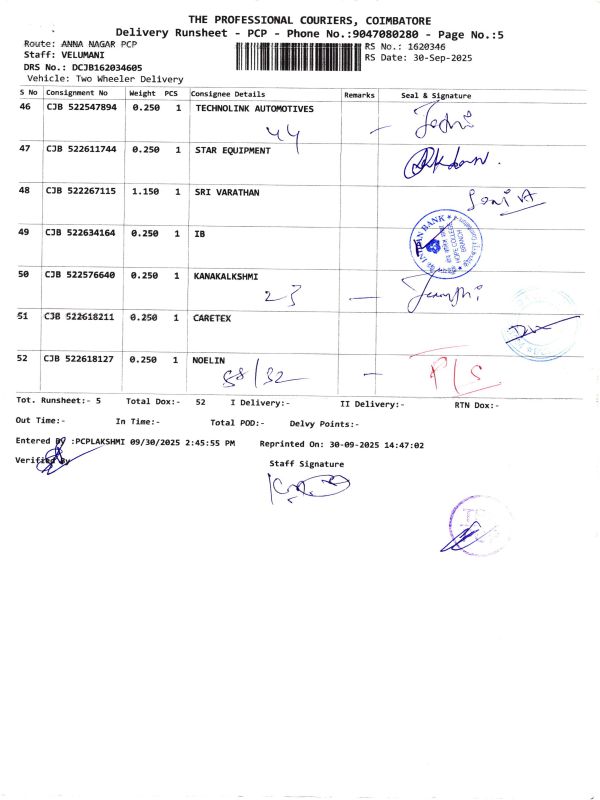 THE PROFESSIONAL COURIERS, COIMBATORE
Delivery Runsheet - PCP - Phone No.:9047080280 - Page No.:5
Route: ANNA NAGAR PCP RS No.: 1620346
Staff: VELUMANI RS Date: 30-Sep-2025
DRS No.: DCJB162034605
Vehicle: Two Wheeler Delivery
S No Consignment No Weight PCS Consignee Details Remarks Seal & Signature
46 CJB 522547894 0.250 1 TECHNOLINK AUTOMOTIVES
44
47 CJB 522611744 0.250 1 STAR EQUIPMENT
48 CJB 522267115 1.150 1 SRI VARATHAN
49 CJB 522634164 0.250 1 IB
BRANCH
50 CJB 522576640 0.250 1 KANAKALKSHMI
23
51 CJB 522618211 0.250 1 CARETEX
52 CJB 522618127 0.250 1 NOELIN
88/32 P/S
Tot. Runsheet:- 5 Total Dox:- 52 I Delivery:- II Delivery:- RTN Dox:-
Out Time:- In Time:- Total POD:- Delvy Points:-
Entered By :PCPLAKSHMI 09/30/2025 2:45:55 PM Reprinted On: 30-09-2025 14:47:02
Verified By
Staff Signature